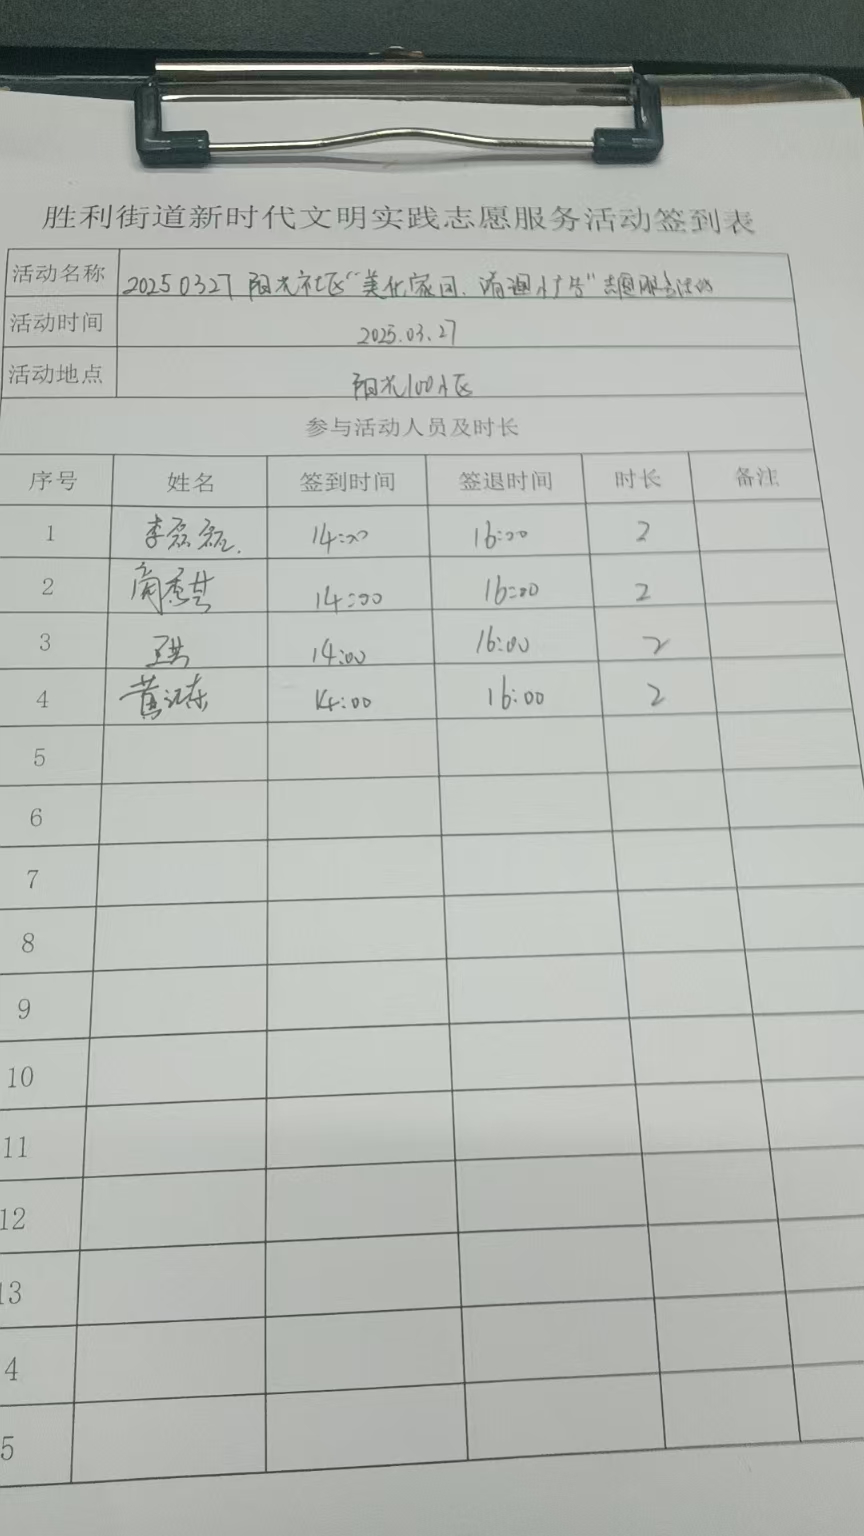 胜利街道新时代文明实践志愿服务活动签到表
活动名称 20250327 阳光社区“美化家园、清理小广告”志愿服务活动
活动时间 2025.03.27
活动地点 阳光100小区
参与活动人员及时长
序号 姓名 签到时间 签退时间 时长 备注
1 李磊磊 14:00 16:00 2
2 14:00 16:00 2
3 王洪 14:00 16:00 2
4 黄江东 14:00 16:00 2
5
6
7
8
9
10
11
12
13
4
5